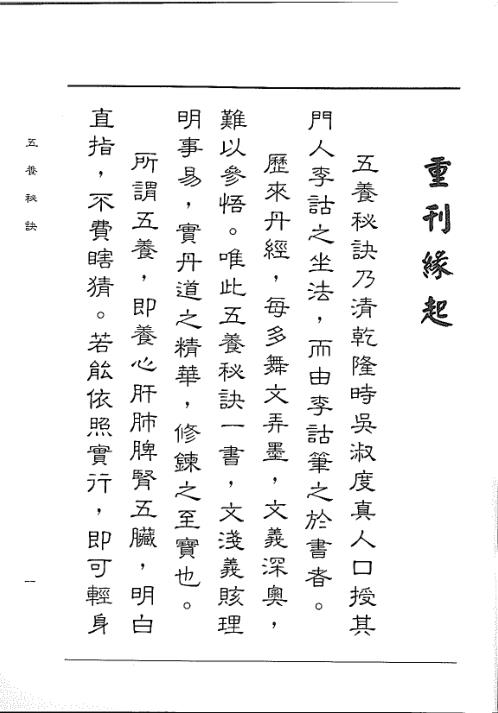 重刊緣起
五養秘訣乃清乾隆時吳淑度真人口授其
門人李詁之坐法，而由李詁筆之於書者。
歷來丹經，每多舞文弄墨，文義深奧，
難以參悟。唯此五養秘訣一書，文淺義賅理
明事易，實丹道之精華，修鍊之至寶也。
所謂五養，即養心肝肺脾腎五臟，明白
直指，不費瞎猜。若能依照實行，即可輕身
五養秘訣
一